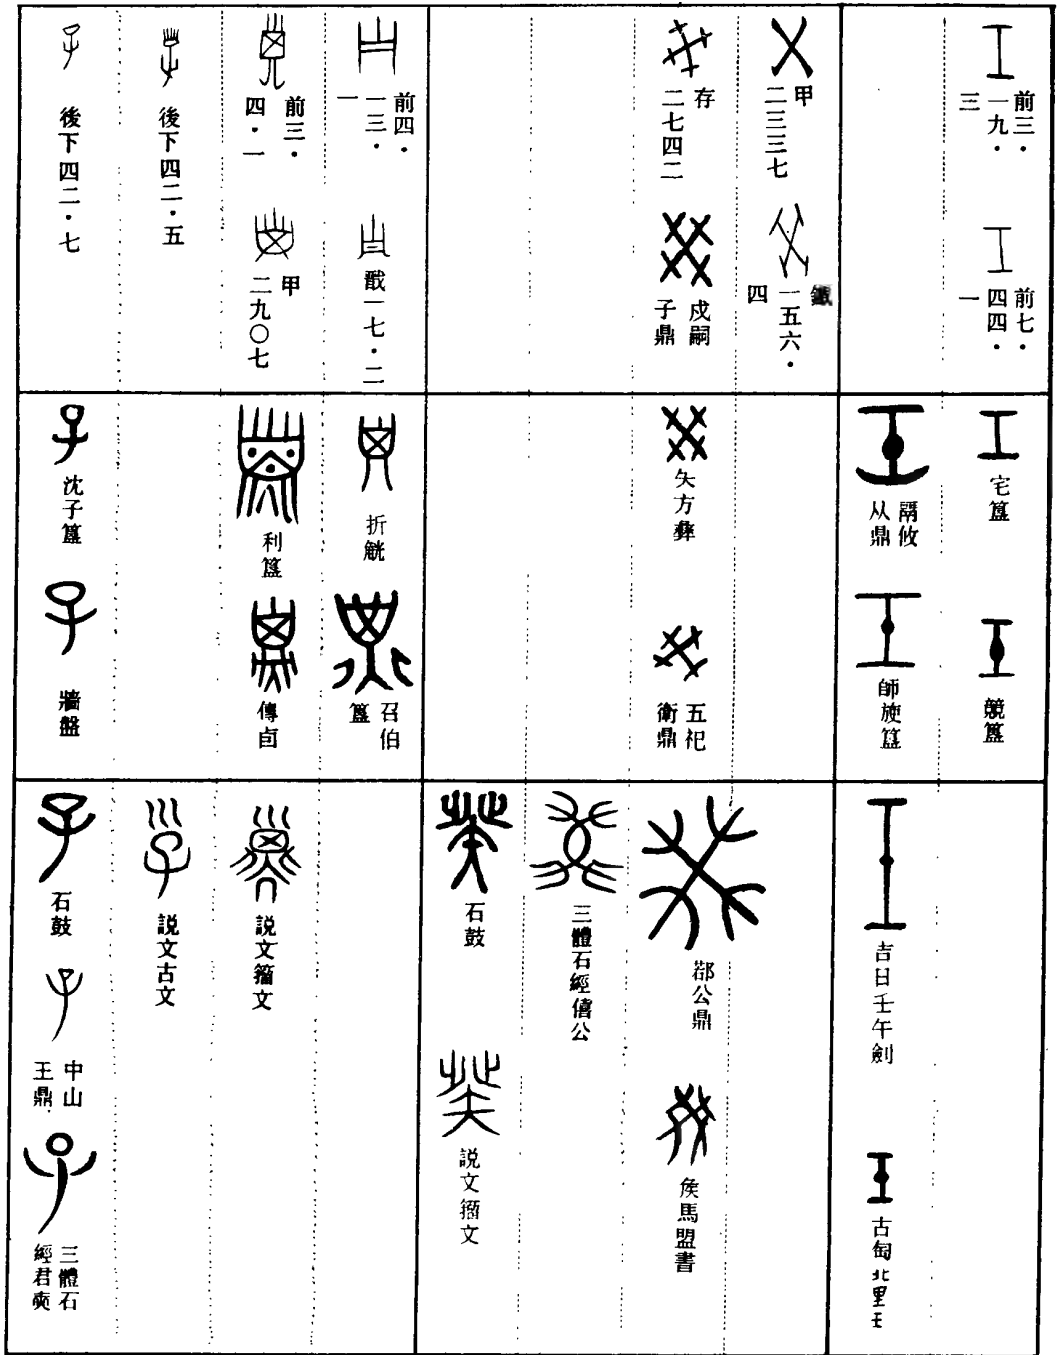 前三·一九·三
前七·四四·一
甲二三三七
鐵一五六·四
存二七四二
戍嗣子鼎
前四·一三·一
戩一七·二
前三·四·一
甲二九〇七
後下四二·五
後下四二·七
宅簋
競簋
鬲攸从鼎
師旋簋
矢方彝
五祀衛鼎
折觥
召伯簋
利簋
傳卣
沈子簋
牆盤
吉日壬午劍
古匋北里壬
鄀公鼎
矦馬盟書
三體石經僖公
石鼓
說文籀文
說文籀文
說文古文
石鼓
中山王鼎
三體石經君奭